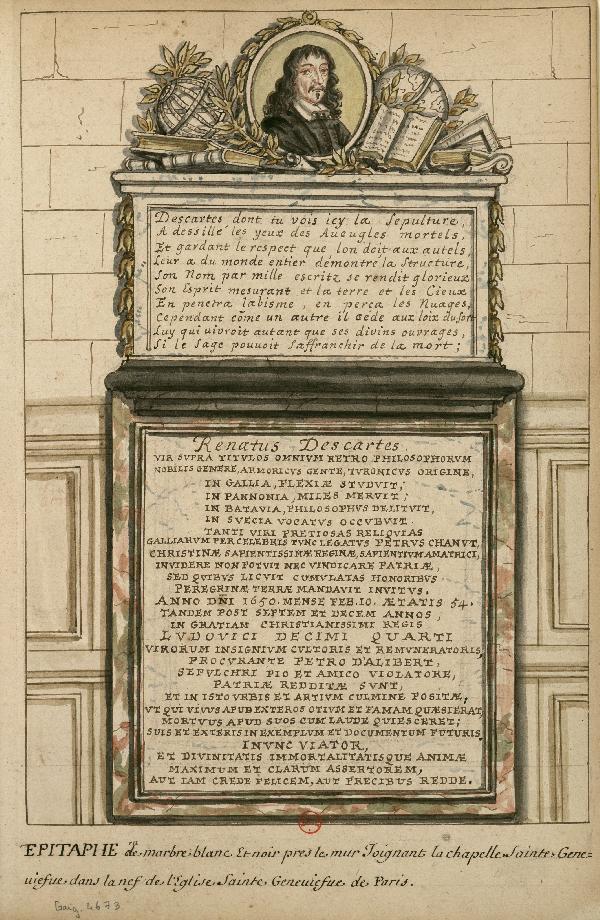 Descartes dont tu vois icy la Sepulture,
A dessillé les yeux des Aueugles mortels,
Et gardant le respect que lon doit aux autels,
Leur a du monde entier démontré la Structure,
Son Nom par mille escrits se rendit glorieux
Son Esprit mesurant et la terre et les Cieux
En penetra labisme, en perca les Nuages,
Cependant cõme un autre il cede aux loix du sort
Luy qui uiuroit autant que ses diuins ouurages,
Si le Sage pouuoit Saffranchir de la mort;
Renatus Descartes
VIR SUPRA TITULOS OMNIUM RETRO PHILOSOPHORVM
NOBILIS GENERE, ARMORICVS GENTE, TVRONICVS ORIGINE,
IN GALLIA, FLEXIÆ STVDVIT;
IN PANNONIA, MILES MERVIT;
IN BATAVIA, PHILOSOPHVS DELITVIT,
IN SVECIA VOCATVS OCCVBVIT.
TANTI VIRI PRETIOSAS RELIQVIAS
GALLIARVM PERCELEBRIS TVNC LEGATVS PETRVS CHANVT,
CHRISTINÆ SAPIENTISSIMÆ REGINÆ, SAPIENTIVM AMATRICI,
INVIDERE NON POTVIT NEC VINDICARE PATRIÆ,
SED QVIBVS LICVIT CVMVLATAS HONORIBVS
PEREGRINÆ TERRÆ MANDAVIT INVITVS.
ANNO DÑI 1650. MENSE FEB. 10. ÆTATIS 54.
TANDEM POST SEPTEM ET DECEM ANNOS,
IN GRATIAM CHRISTIANISSIMI REGIS
LVDOVICI DECIMI QUARTI
VIRORUM INSIGNIVM CVLTORIS ET REMVNERATORIS,
PROCVRANTE PETRO D'ALIBERT,
SEPVLCHRI PIO ET AMICO VIOLATORE,
PATRIÆ REDDITÆ SVNT,
ET IN ISTO VRBIS ET ARTIVM CVLMINE POSITÆ;
VT QVI VIVVS APVD EXTEROS OTIVM ET FAMAM QVÆSIERAT,
MORTVVS APVD SVOS CVM LAVDE QVIESCERET;
SVIS ET EXTERIS IN EXEMPLVM ET DOCVMENTVM FVTVRIS,
I NVNC VIATOR,
ET DIVINITATIS IMMORTALITATISQVE ANIMÆ
MAXIMVM ET CLARVM ASSERTOREM,
AVT IAM CREDE FELICEM, AVT PRECIBVS REDDE.
EPITAPHE de marbre blanc Et noir pres le mur Joignant la chapelle Sainte Gene=
uiefue dans la nef de l'Eglise Sainte Geneuiefue de Paris.
Gaig. 4673